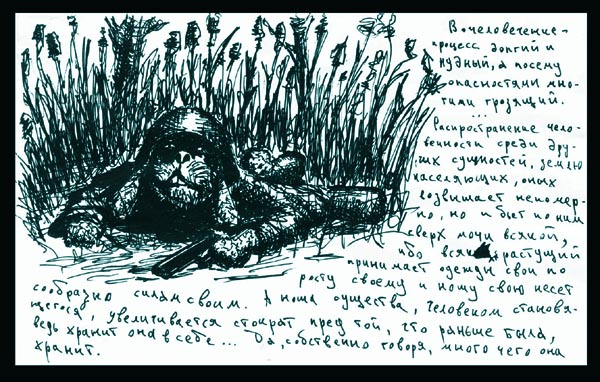 Вочеловечение -
процесс долгий и
нудный, а посему
опасностями мно-
гими грозящий.
...
Распространение чело-
вечности среди дру-
гих сущностей, землю
населяющих, оных
возвышает непомер-
но, но и бьёт по ним
сверх мочи всякой,
ибо всяк растущий
принимает одежды свои по
росту своему и ношу свою несет
сообразно силам своим. А ноша существа, человеком становя-
щегося, увеличивается стократ пред той, что раньше была,
ведь хранит она в себе... Да, собственно говоря, много чего она
хранит.